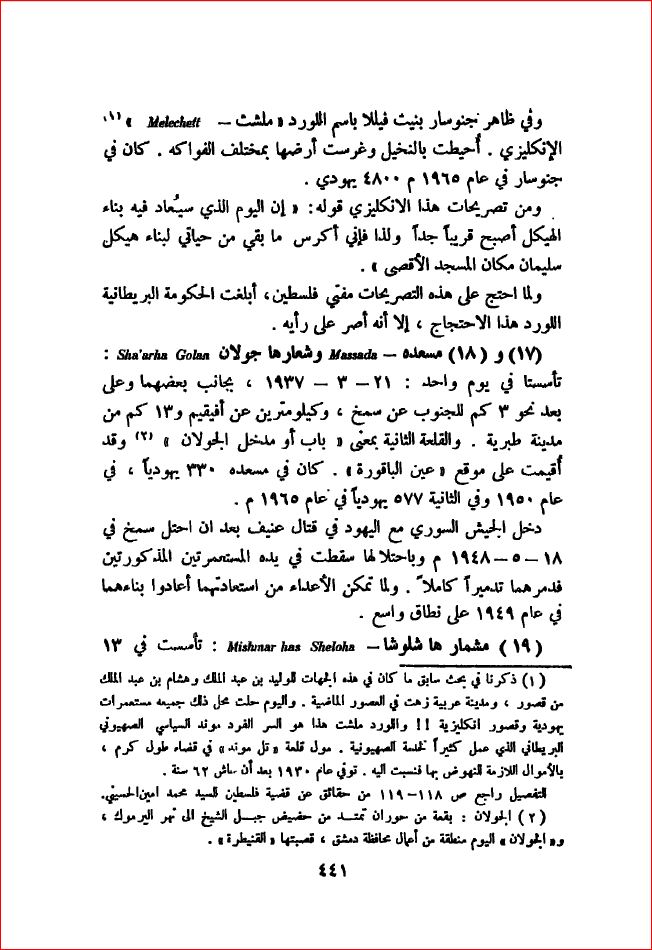 وفي ظاهر جنوسار بنيت فيللا باسم اللورد « ملشت – Melechett » (١)
الإنكليزي . أُحيطت بالنخيل وغرست أرضها بمختلف الفواكه . كان في
جنوسار في عام ١٩٦٥ م ٤٨٠٠ يهودي .
ومن تصريحات هذا الانكليزي قوله: « إن اليوم الذي سيُعاد فيه بناء
الهيكل أصبح قريباً جداً ولذا فإني أكرس ما بقي من حياتي لبناء هيكل
سليمان مكان المسجد الأقصى » .
ولما احتج على هذه التصريحات مفتي فلسطين، أبلغت الحكومة البريطانية
اللورد هذا الاحتجاج ، إلا أنه أصر على رأيه .
(١٧) و (١٨) مسعده – Massada وشعارها جولان Sha'arha Golan :
تأسستا في يوم واحد : ٢١ – ٣ – ١٩٣٧ ، بجانب بعضهما وعلى
بعد نحو ٣ كم للجنوب عن سمخ ، وكيلومترين عن أفيقيم و١٣ كم من
مدينة طبرية . والقلعة الثانية بمعنى « باب أو مدخل الجولان » (٢) وقد
أُقيمت على موقع « عين الباقورة » . كان في مسعده ٣٣٠ يهودياً ، في
عام ١٩٥٠ وفي الثانية ٥٧٧ يهودياً في عام ١٩٦٥ م .
دخل الجيش السوري مع اليهود في قتال عنيف بعد ان احتل سمخ في
١٨ – ٥ – ١٩٤٨ م وباحتلالها سقطت في يده المستعمرتين المذكورتين
فدمرهما تدميراً كاملاً . ولما تمكن الأعداء من استعادتهما أعادوا بناءهما
في عام ١٩٤٩ على نطاق واسع .
(١٩) مشمار ها شلوشا – Mishmar has Sheloha : تأسست في ١٣
(١) ذكرنا في بحث سابق ما كان في هذه الجهات للوليد بن عبد الملك وهشام بن عبد الملك
من قصور ، ومدينة عربية زهت في العصور الماضية . واليوم حلت محل ذلك جميعه مستعمرات
يهودية وقصور انكليزية !! واللورد ملشت هذا هو السر الفرد موند السياسي الصهيوني
البريطاني الذي عمل كثيراً لخدمة الصهيونية . مول قلعة « تل موند » في قضاء طول كرم ،
بالأموال اللازمة للنهوض بها فنسبت اليه . توفي عام ١٩٣٠ بعد أن عاش ٦٢ سنة .
للتفصيل راجع ص ١١٨–١١٩ من حقائق عن قضية فلسطين للسيد محمد امين الحسيني.
(٢) الجولان : بقعة من حوران تمتد من حضيض جبل الشيخ الى نهر اليرموك ،
و« الجولان » اليوم منطقة من أعمال محافظة دمشق ، قصبتها « القنيطرة » .
٤٤١